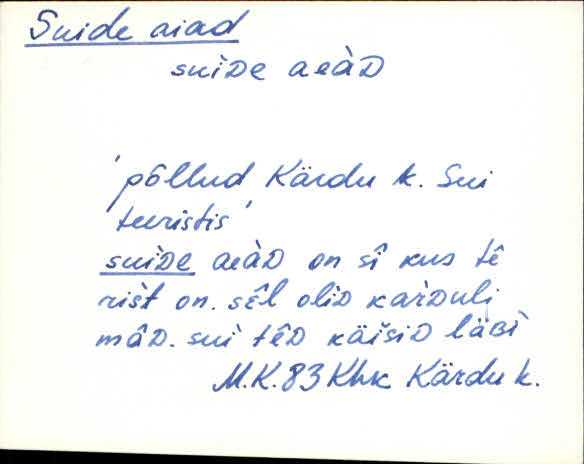 Suide aiad
suìᴅe aeàᴅ
'põllud Kärdu k. Sui
teeristis'
suìᴅe aeàᴅ on sî kus tê
rišt on. sêl oliᴅ kaŕdulj
mâᴅ. sui têᴅ käišiᴅ läʙì
M.K. 83 Khk Kärdu k.